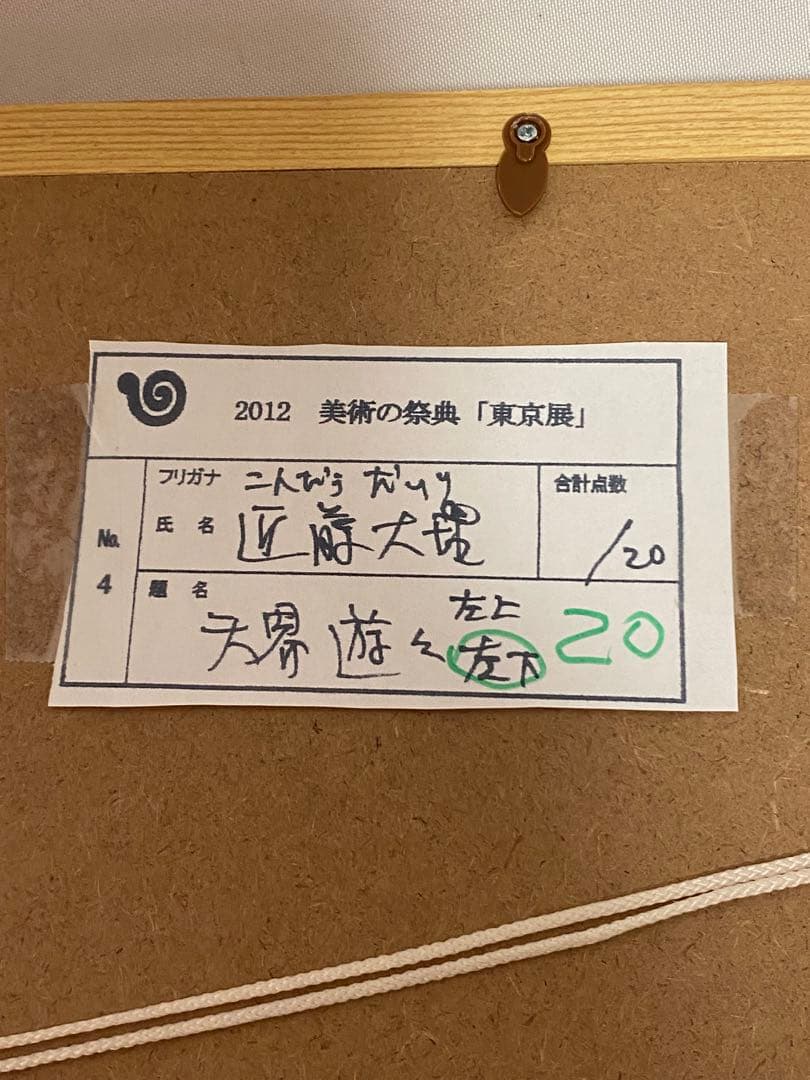 2012 美術の祭典「東京展」
フリガナ こんどう だいり
氏名 近藤大
合計点数
/20
No.
4
題名
天界遊々
左上
左下
20